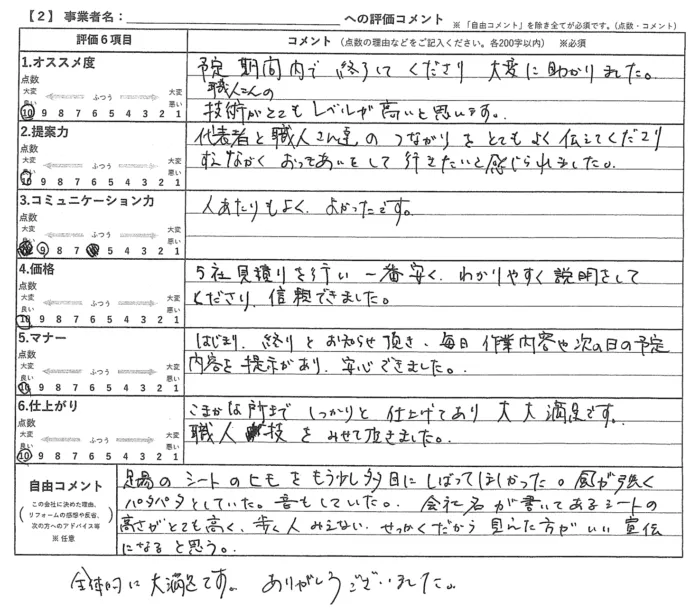 【2】事業者名：　　　　　　への評価コメント　※「自由コメント」を除き全てが必須です。(点数・コメント)
評価6項目　コメント（点数の理由などをご記入ください。各200字以内）※必須
1.オススメ度
点数
大変良い　ふつう　大変悪い
10 9 8 7 6 5 4 3 2 1
予定期間内で終了してくださり大変に助かりました。
職人さんの
技術がとてもレベルが高いと思います。
2.提案力
点数
大変良い　ふつう　大変悪い
10 9 8 7 6 5 4 3 2 1
代表者と職人さん達のつながりをとてもよく伝えてくださり
すえながくおつきあいをして行きたいと感じられました。
3.コミュニケーション力
点数
大変良い　ふつう　大変悪い
9 8 7 6 5 4 3 2 1
人あたりもよく、よかったです。
4.価格
点数
大変良い　ふつう　大変悪い
10 9 8 7 6 5 4 3 2 1
5社見積りを行い一番安く、わかりやすく説明をして
くださり、信頼できました。
5.マナー
点数
大変良い　ふつう　大変悪い
10 9 8 7 6 5 4 3 2 1
はじまり、終りとお知らせ頂き、毎日作業内容や次の日の予定
内容を提示があり、安心できました。
6.仕上がり
点数
大変良い　ふつう　大変悪い
10 9 8 7 6 5 4 3 2 1
こまかな所までしっかりと仕上げてあり大大満足です。
職人技をみせて頂きました。
自由コメント
（この会社に決めた理由、
リフォームの感想や反省、
次の方へのアドバイス等）
※ 任意
足場のシートのヒモをもう少し多目にしばってほしかった。風が強く
バタバタとしていた。音もしていた。会社名が書いてあるシートの
高さがとても高く、歩く人みえない、せっかくだから見えた方がいい宣伝
になると思う。
全体的に大満足です。ありがとうございました。